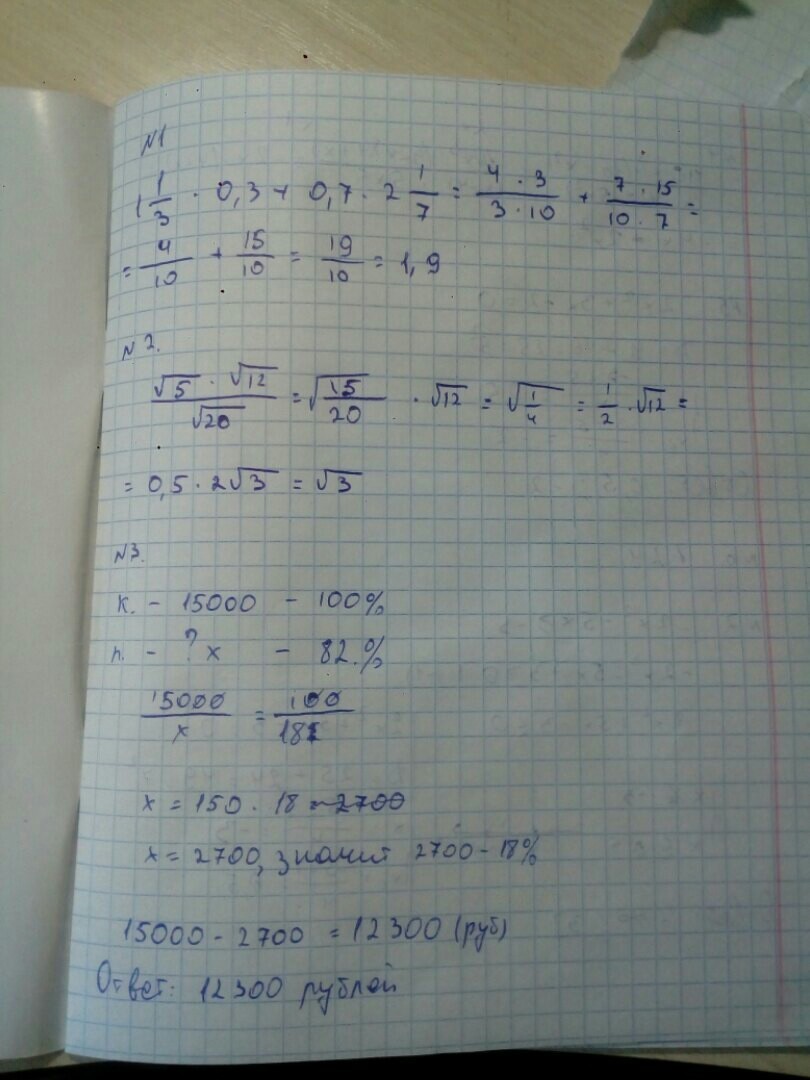 N1
1 1/3 · 0,3 + 0,7 · 2 1/7 = 4 · 3 / 3 · 10 + 7 · 15 / 10 · 7 =
= 4/10 + 15/10 = 19/10 = 1,9
N2.
√5 · √12 / √20 = √15/20 · √12 = √1/4 = 1/2 · √12 =
= 0,5 · 2√3 = √3
N3.
к. - 15000 - 100%
п. - ? x - 82.%
15000 / x = 100 /
x = 150 · 18 = 2700
x = 2700, значит 2700 - 18%
15000 - 2700 = 12300 (руб)
Ответ: 12300 рублой